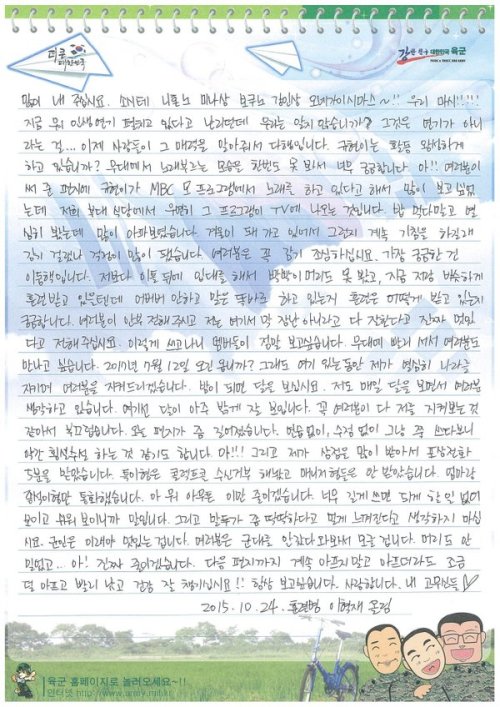 강한 친구 대한민국 육군
많이 내 주십시오. 소시테 니혼노 미나상 보쿠노 오네가이시마스~!! 우리
지금 뭐 인생연기 펼치고 있다고 난리던데 웃기는 않지 않습니까? 그것은 연기가 아니
라는 걸... 이제 사람들이 그 매력을 알아줘서 다행입니다. 규현이는 활동 완성하게
하고 있습니까? 무대에서 노래부르는 모습을 한번도 못 봐서 너무 궁금합니다. 아!! 여러분이
써 준 편지에 규현이가 MBC 모 프로그램에서 노래를 하고 있다고 해서 많이 보고 싶었
는데 저희 부대 식당에서 우연히 그 프로그램이 TV에 나오는 것입니다. 밥 먹다말고 열
심히 봤는데 많이 아파보였습니다. 겨울이 돼 가고 있어서 그런지 계속 기침을 하길래
감기 걸렸나 걱정이 많이 됐습니다. 여러분은 꼭 감기 조심하십시오. 가장 궁금한 건
이동해입니다. 저보다 이틀 뒤에 입대를 해서 빡빡이머리도 못 봤고, 지금 저랑 비슷하게
훈련 받고 있을텐데 어버버 안하고 말은 또박또박 하고 있는지 훈련은 어떻게 받고 있는지
궁금합니다. 여러분이 안부 전해주시고 저는 여기서 막 장난 아니라고 다 잘한다고 진짜 멋있
다고 전해 주십시오. 이렇게 쓰고나니 멤버들이 정말 보고싶습니다. 무대에 빨리 서서 여러분도
만나고 싶습니다. 2017년 7월 12일 오긴 옵니까? 그래도 여기 있는동안 제가 열심히 나라를
지키며 여러분을 지켜드리겠습니다. 밤이 되면 달을 보십시오. 저도 매일 달을 보면서 여러분
생각하고 있습니다. 여기선 달이 아주 밝게 잘 보입니다. 꼭 여러분이 다 저를 지켜보는 것
같아서 부끄럽습니다. 오늘 편지가 좀 길어졌습니다. 연습 없이, 수정 없이 그냥 쭉 쓰다보니
약간 횡설수설 하는 것 같기도 합니다. 아!! 그리고 제가 상점을 많이 받아서 포상전화
5분을 받았습니다. 특이형은 콜렉트콜 수신거부 해놨고 매니저형들은 안 받았습니다. 엄마랑
통화했습니다. 아 뭐 아무튼 이만 줄이겠습니다. 너무 길게 쓰면 되게 할 일 없어
보이고 뭐 보이니까 말입니다. 그리고 말투가 좀 딱딱하다고 멀게 느껴진다고 생각하지 마십
시오. 군인은 이래야 멋있는 겁니다. 여러분은 군대를 안갔다 와봐서 모를 겁니다. 머리도 안
밀었고... 아! 진짜 줄이겠습니다. 다음 편지까지 계속 아프지말고 아프더라도 조금
덜 아프고 빨리 낫고 건강 잘 챙기십시오!! 항상 보고싶습니다. 사랑합니다. 내 고유신들 ♡
2015. 10. 24. 훈련병 이혁재 올림
육군 홈페이지로 놀러오세요~!!
인터넷 http://www.army.mil.kr